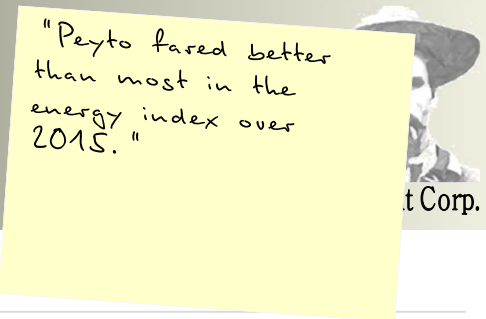 "Peyto fared better
than most in the
energy index over
2015."
t Corp.